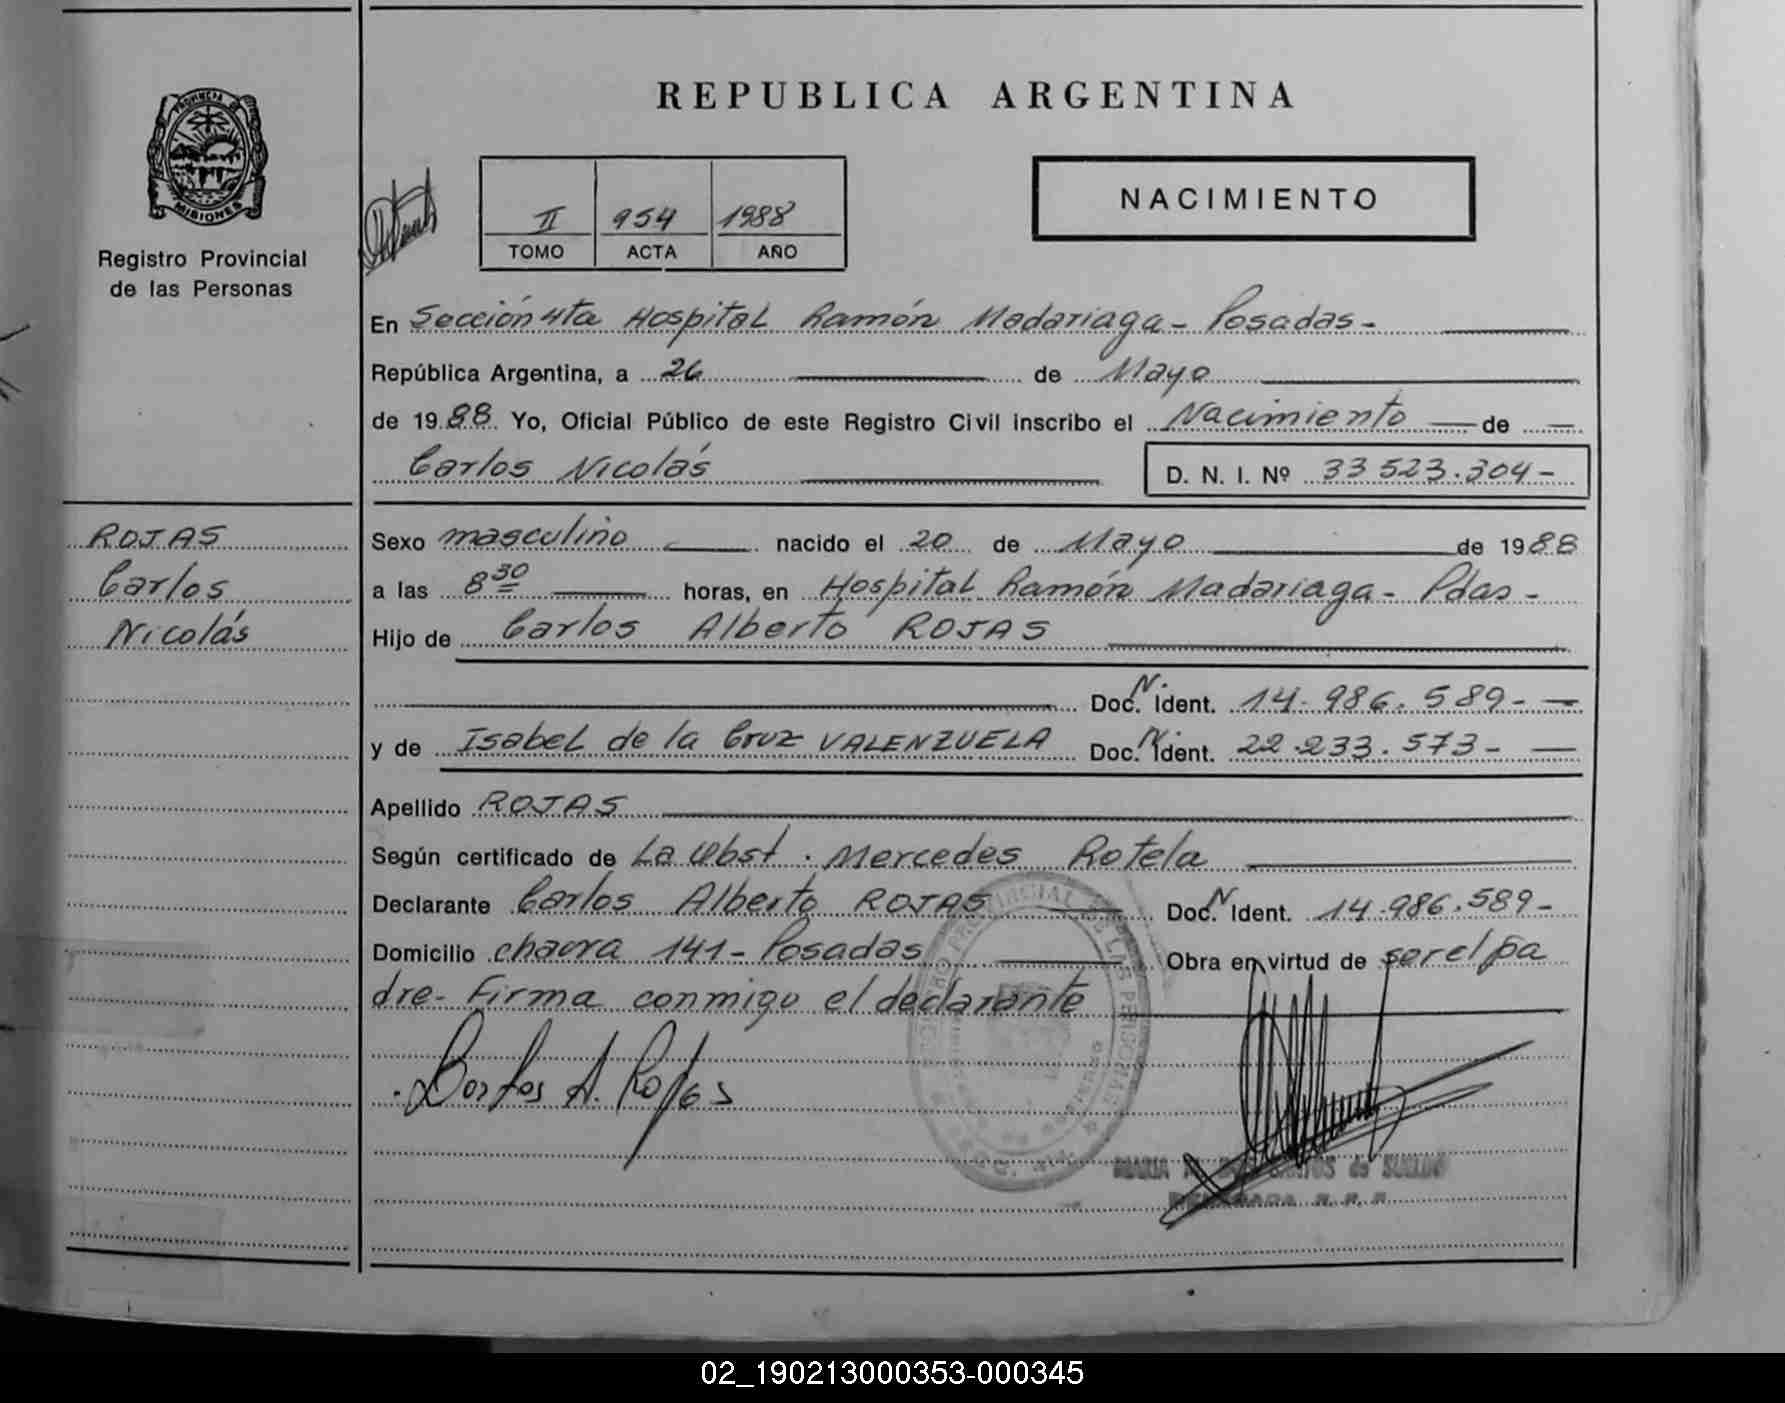 REPUBLICA ARGENTINA
PROVINCIA DE
MISIONES
Registro Provincial
de las Personas
II 954 1988
TOMO ACTA AÑO
NACIMIENTO
En Sección 4ta Hospital Ramón Madariaga - Posadas -
República Argentina, a 26 de Mayo
de 1988 Yo, Oficial Público de este Registro Civil inscribo el Nacimiento de
Carlos Nicolás D. N. I. Nº 33 523.304 -
ROJAS
Carlos
Nicolás
Sexo masculino nacido el 20 de Mayo de 1988
a las 8 30 horas, en Hospital Ramón Madariaga - Pdas -
Hijo de Carlos Alberto ROJAS
Doc. N. Ident. 14.986.589 -
y de Isabel de la Cruz VALENZUELA Doc. N. Ident. 22.233.573 -
Apellido ROJAS
Según certificado de La Obst. Mercedes Rotela
Declarante Carlos Alberto ROJAS Doc. N Ident. 14.986.589 -
Domicilio chacra 141 - Posadas Obra en virtud de ser el pa
dre - Firma conmigo el declarante
Carlos A. Rojas
de SUELDO
02_190213000353-000345